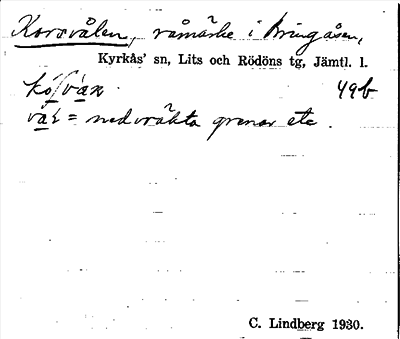 Korsvålen, råmärke i Bringåsen,
Kyrkås' sn, Lits och Rödöns tg, Jämtl. l.
49b
= nedvräkta grenar etc.
C. Lindberg 1930.